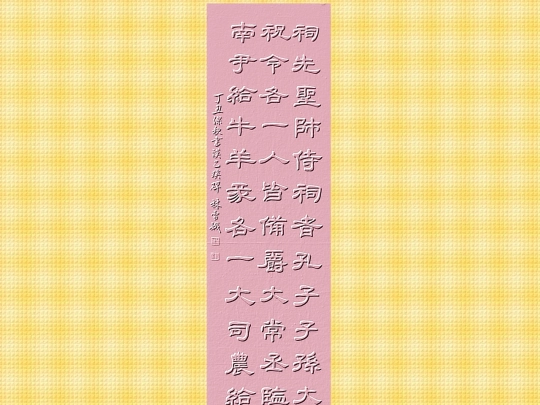 祠先聖師侍祠者孔子子孫大
祝令各一人皆備爵大常丞臨
南尹給牛羊豕各一大司農給
丁丑深秋書漢乙瑛碑 林